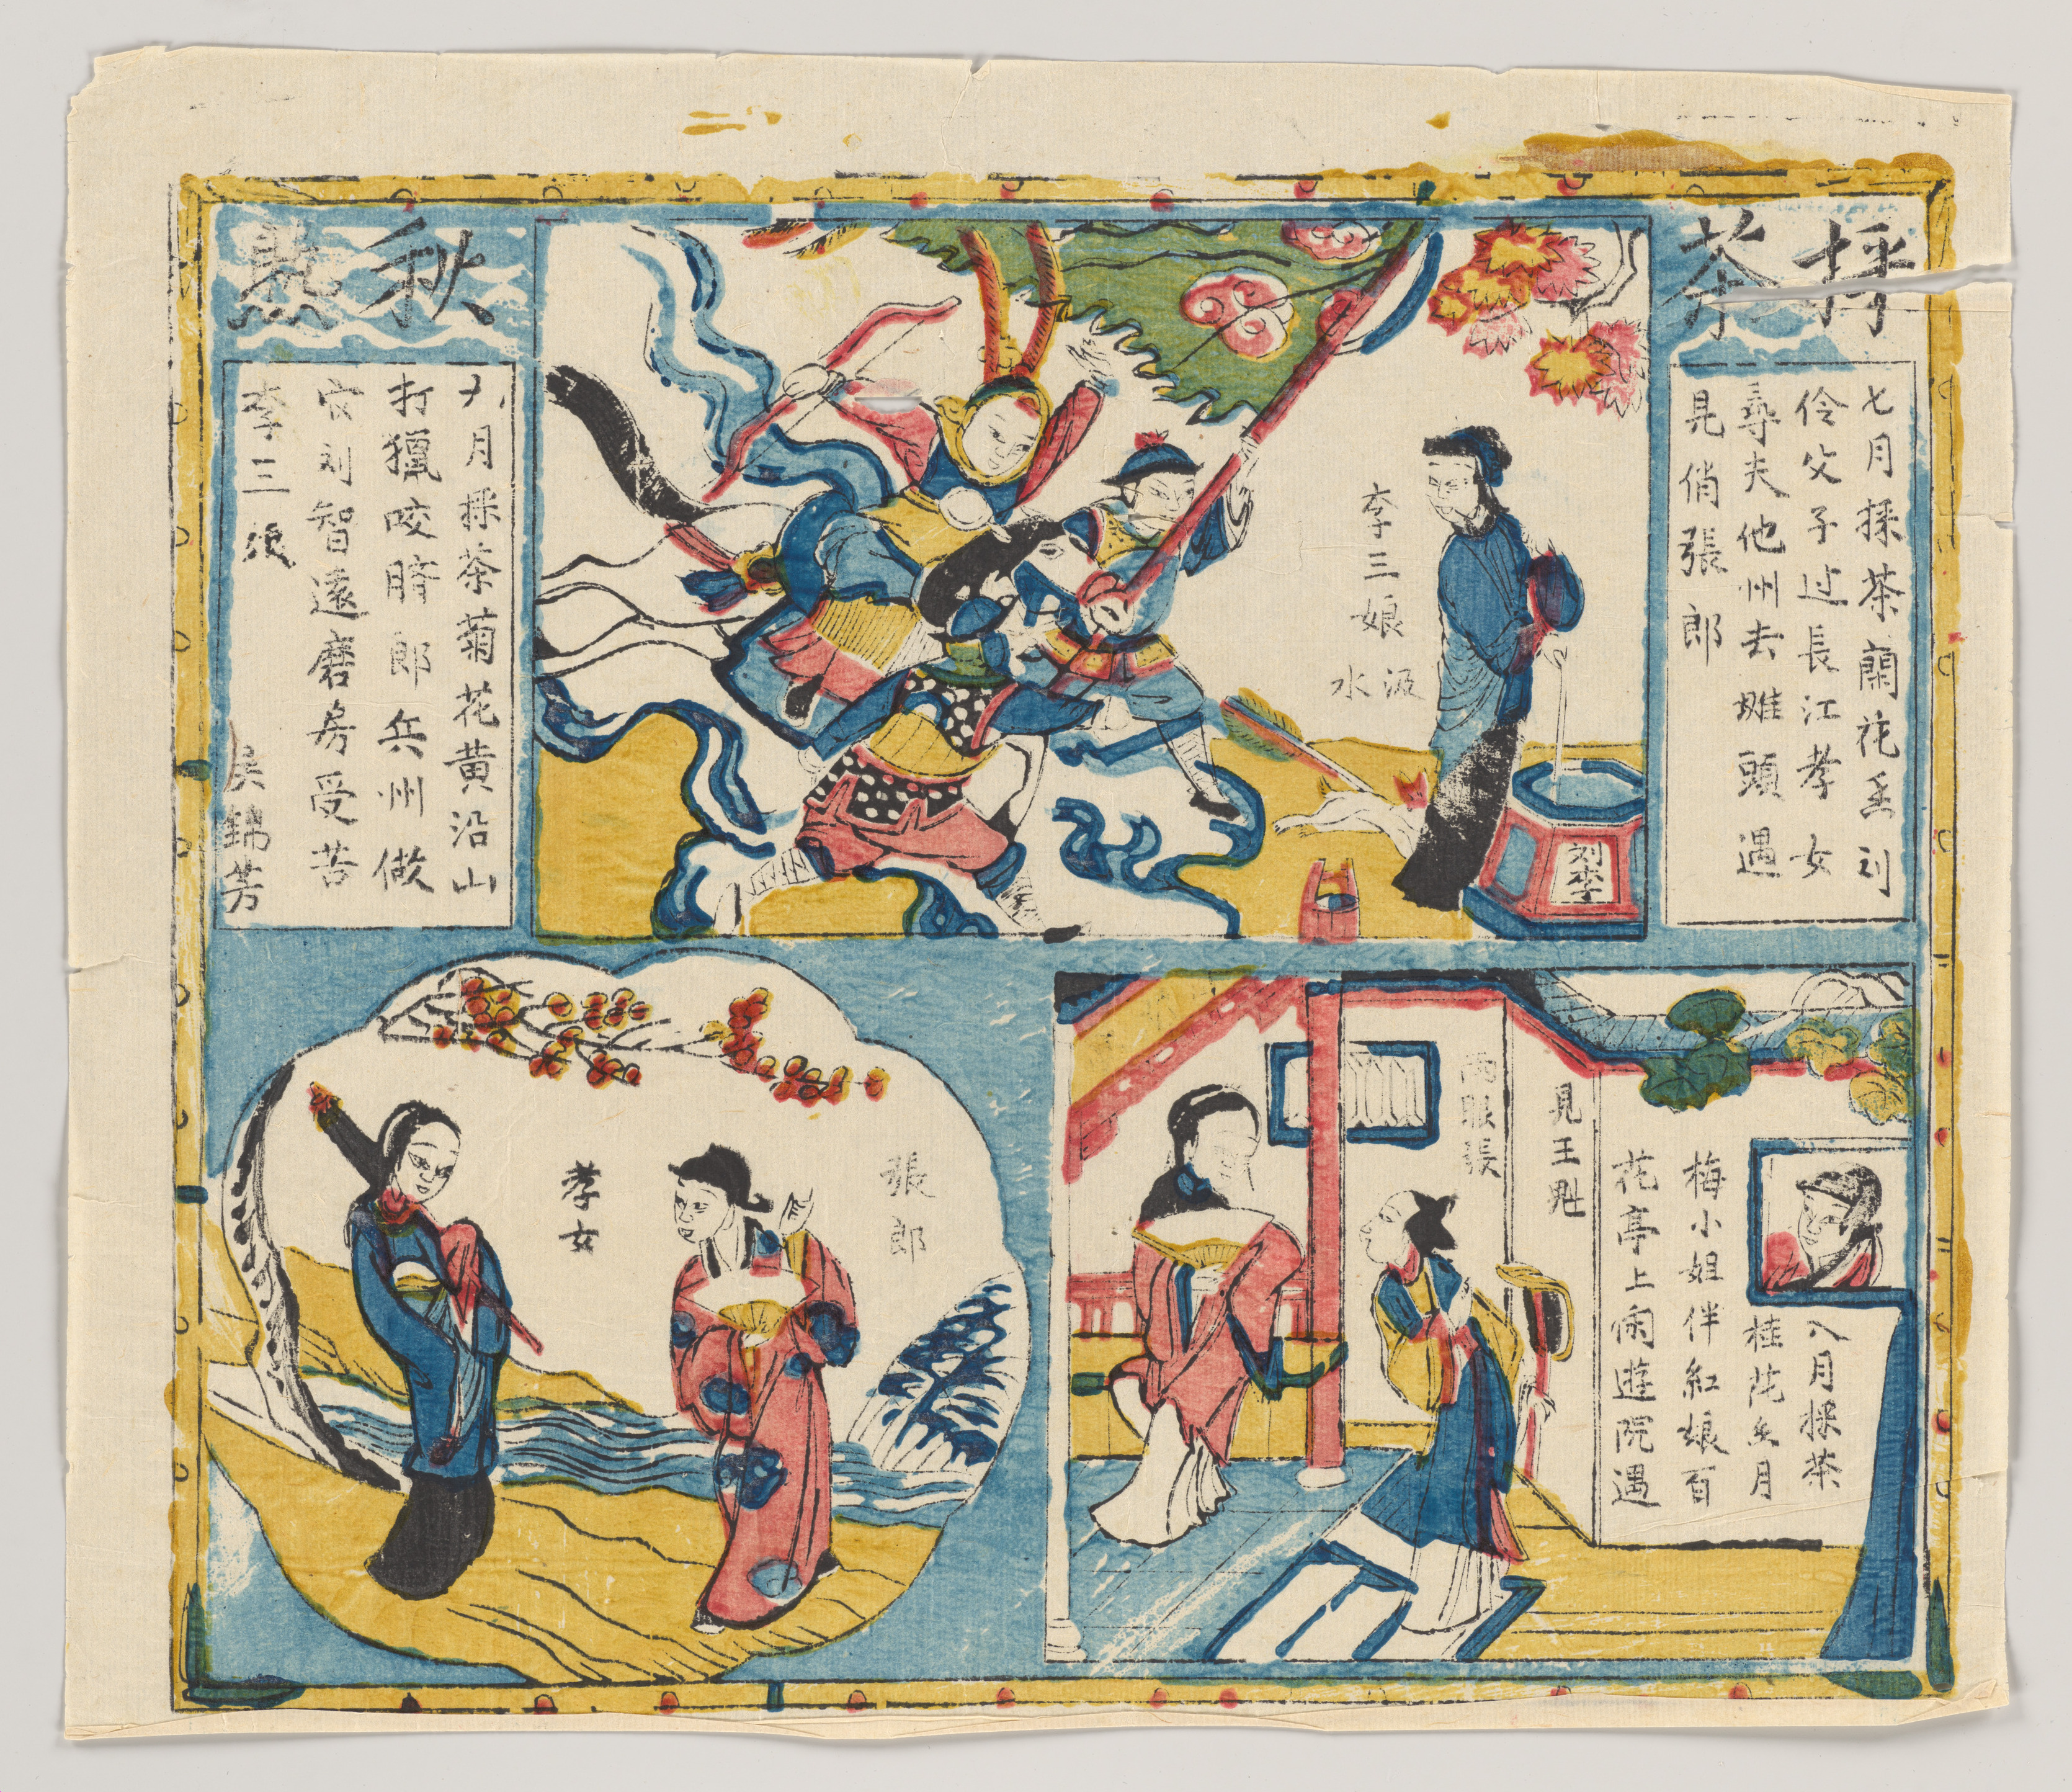 採茶
秋
七月採茶蘭花刘
伶父子过長江孝女
尋夫他州去頭遇
見俏張郎
李三娘
汲水
刘李
九月採茶菊花黄沿山
打獵咬臍郎兵州做
官刘智遠磨房受苦
李三娘
吳錦芳
八月採茶
桂花月
梅小姐伴紅娘百
花亭上闲遊院遇
見王魁
两眼張
張郎
孝女